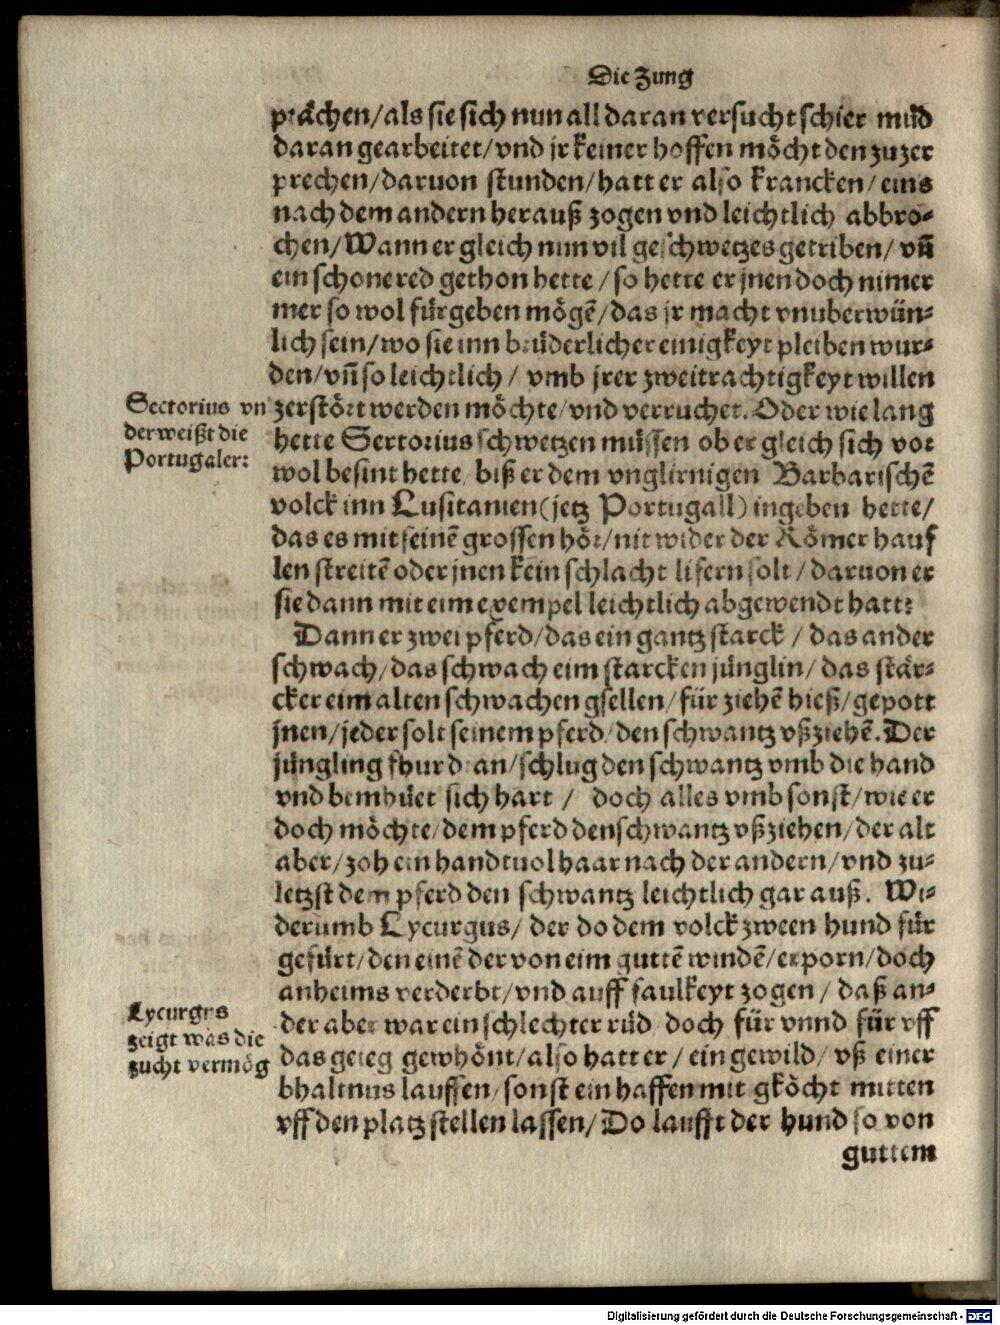 Die Zung
prächen/als sie sich nun all daran versucht schier müd
daran gearbeitet/vnd jr keiner hoffen möcht den zuzer
prechen/daruon stunden/hatt er also krancken/eins
nach dem andern herauß zogen vnd leichtlich abbro⸗
chen/Wann er gleich nun vil geschwetzes getriben/vñ
ein schone red gethon hette/so hette er jnen doch nimer
mer so wol fürgeben mögẽ/das jr macht vnuberwün⸗
lich sein/wo sie inn brüderlicher einigkeyt pleiben wur⸗
den/vñ so leichtlich/vmb jrer zweitrachtigkeyt willen
Sectorius vn
derweißt die
Portugaler:
zerstört werden möchte/vnd verruchet. Oder wie lang
hette Sertorius schwetzen müssen ob er gleich sich vor
wol besint hette biß er dem vnglirnigen Barbarischẽ
volck inn Lusitanien(jetz Portugall)ingeben hette/
das es mit seinẽ grossen hör/nit wider der Römer hauf
len streitẽ oder jnen kein schlacht lifern solt/daruon er
sie dann mit eim exempel leichtlich abgewendt hatt:
Dann er zwei pferd/das ein gantz starck/das ander
schwach/das schwach eim starcken jünglin/das stär⸗
cker eim alten schwachen gsellen/für ziehẽ hieß/gepott
jnen/jeder solt seinem pferd/den schwantz vßziehẽ. Der
jüngling fhur d an/schlug den schwantz vmb die hand
vnd bemhüet sich hart/doch alles vmb sonst/wie er
doch möchte/dem pferd den schwantz vßziehen/der alt
aber/zoh ein handtuol haar nach der andern/vnd zu⸗
letzst dem pferd den schwantz leichtlich gar auß. Wi⸗
derumb Lycurgus/der do dem volck zween hund für
gefürt/den einẽ der von eim guttẽ windẽ/erporn/doch
anheims verderbt/vnd auff faulkeyt zogen/daß an⸗
Lycurgrs
zeigt was die
zucht vermög
der aber war ein schlechter rüd doch für vnnd für vff
das geieg gewhönt/also hatt er/ein gewild/vß einer
bhaltnus lauffen/sonst ein haffen mit gköcht mitten
vff den platz stellen lassen/Do laufft der hund so von
guttem
Digitalisierung gefördert durch die Deutsche Forschungsgemeinschaft - DFG